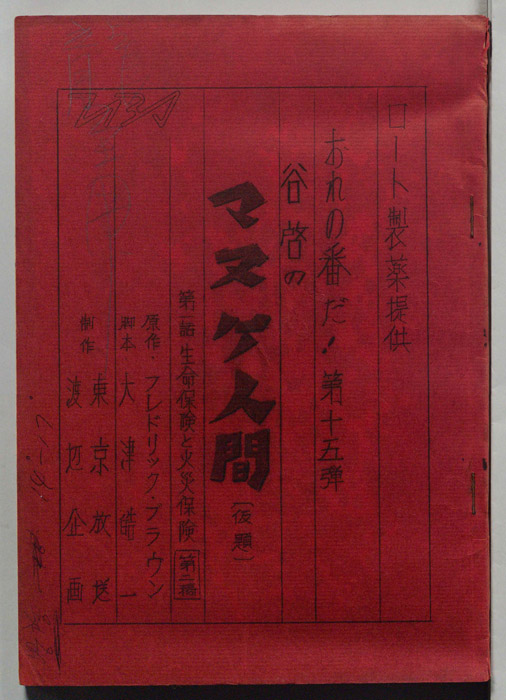 ロート製薬提供
おれの番だ！ 第十五弾
谷啓の
マヌケ人間（仮題）
第一話 生命保険と火災保険 第二稿
原作 フレドリック・ブラウン
脚本 大津皓一
制作 東京放送
渡辺企画